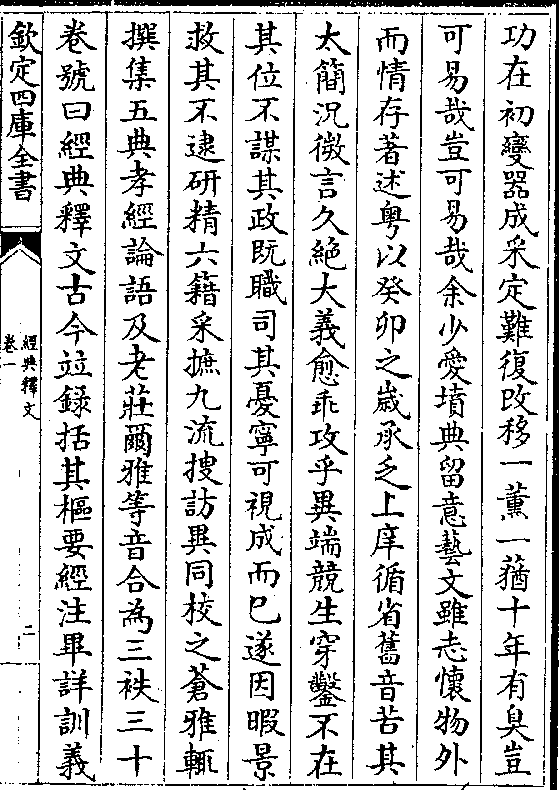 功在初變器成采定難復改移一薰一蕕十年有臭豈
可易哉豈可易哉余少愛墳典留意藝文雖志懷物外
而情存著述粤以癸卯之歲承乏上庠循省舊音苦其
太簡況微言久絶大義愈乖攻乎異端競生穿鑿不在
其位不謀其政既職司其憂寧可視成而已遂因暇景
救其不逮研精六籍采摭九流搜訪異同校之蒼雅輒
撰集五典孝經論語及老莊爾雅等音合為三袟三十
卷號曰經典釋文古今竝錄括其樞要經注畢詳訓義
欽定四庫全書
經典釋文
卷一
二